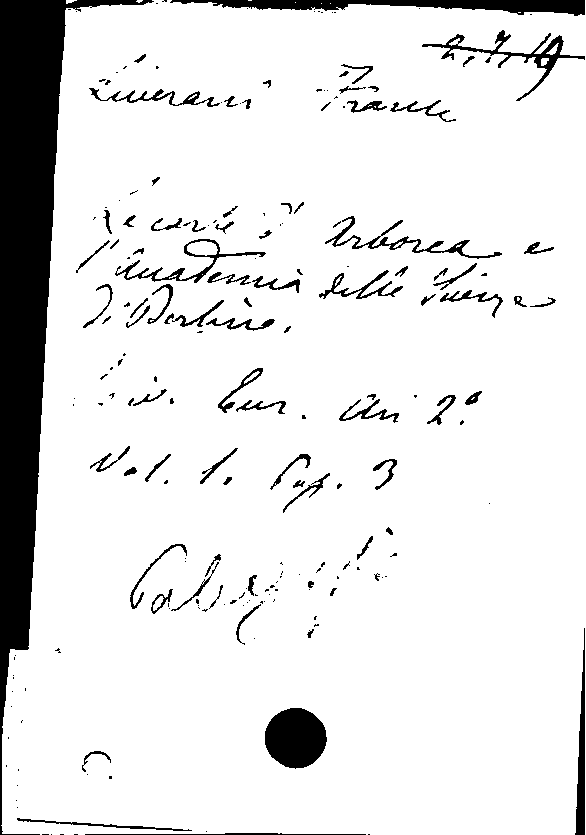 2.7.19
Liverani Franc
Le carte d' Arborea e
l'Accademia delle Scienze
di Berlino.
Riv. Eur. An 2.º
Vol. 1. Pag. 3